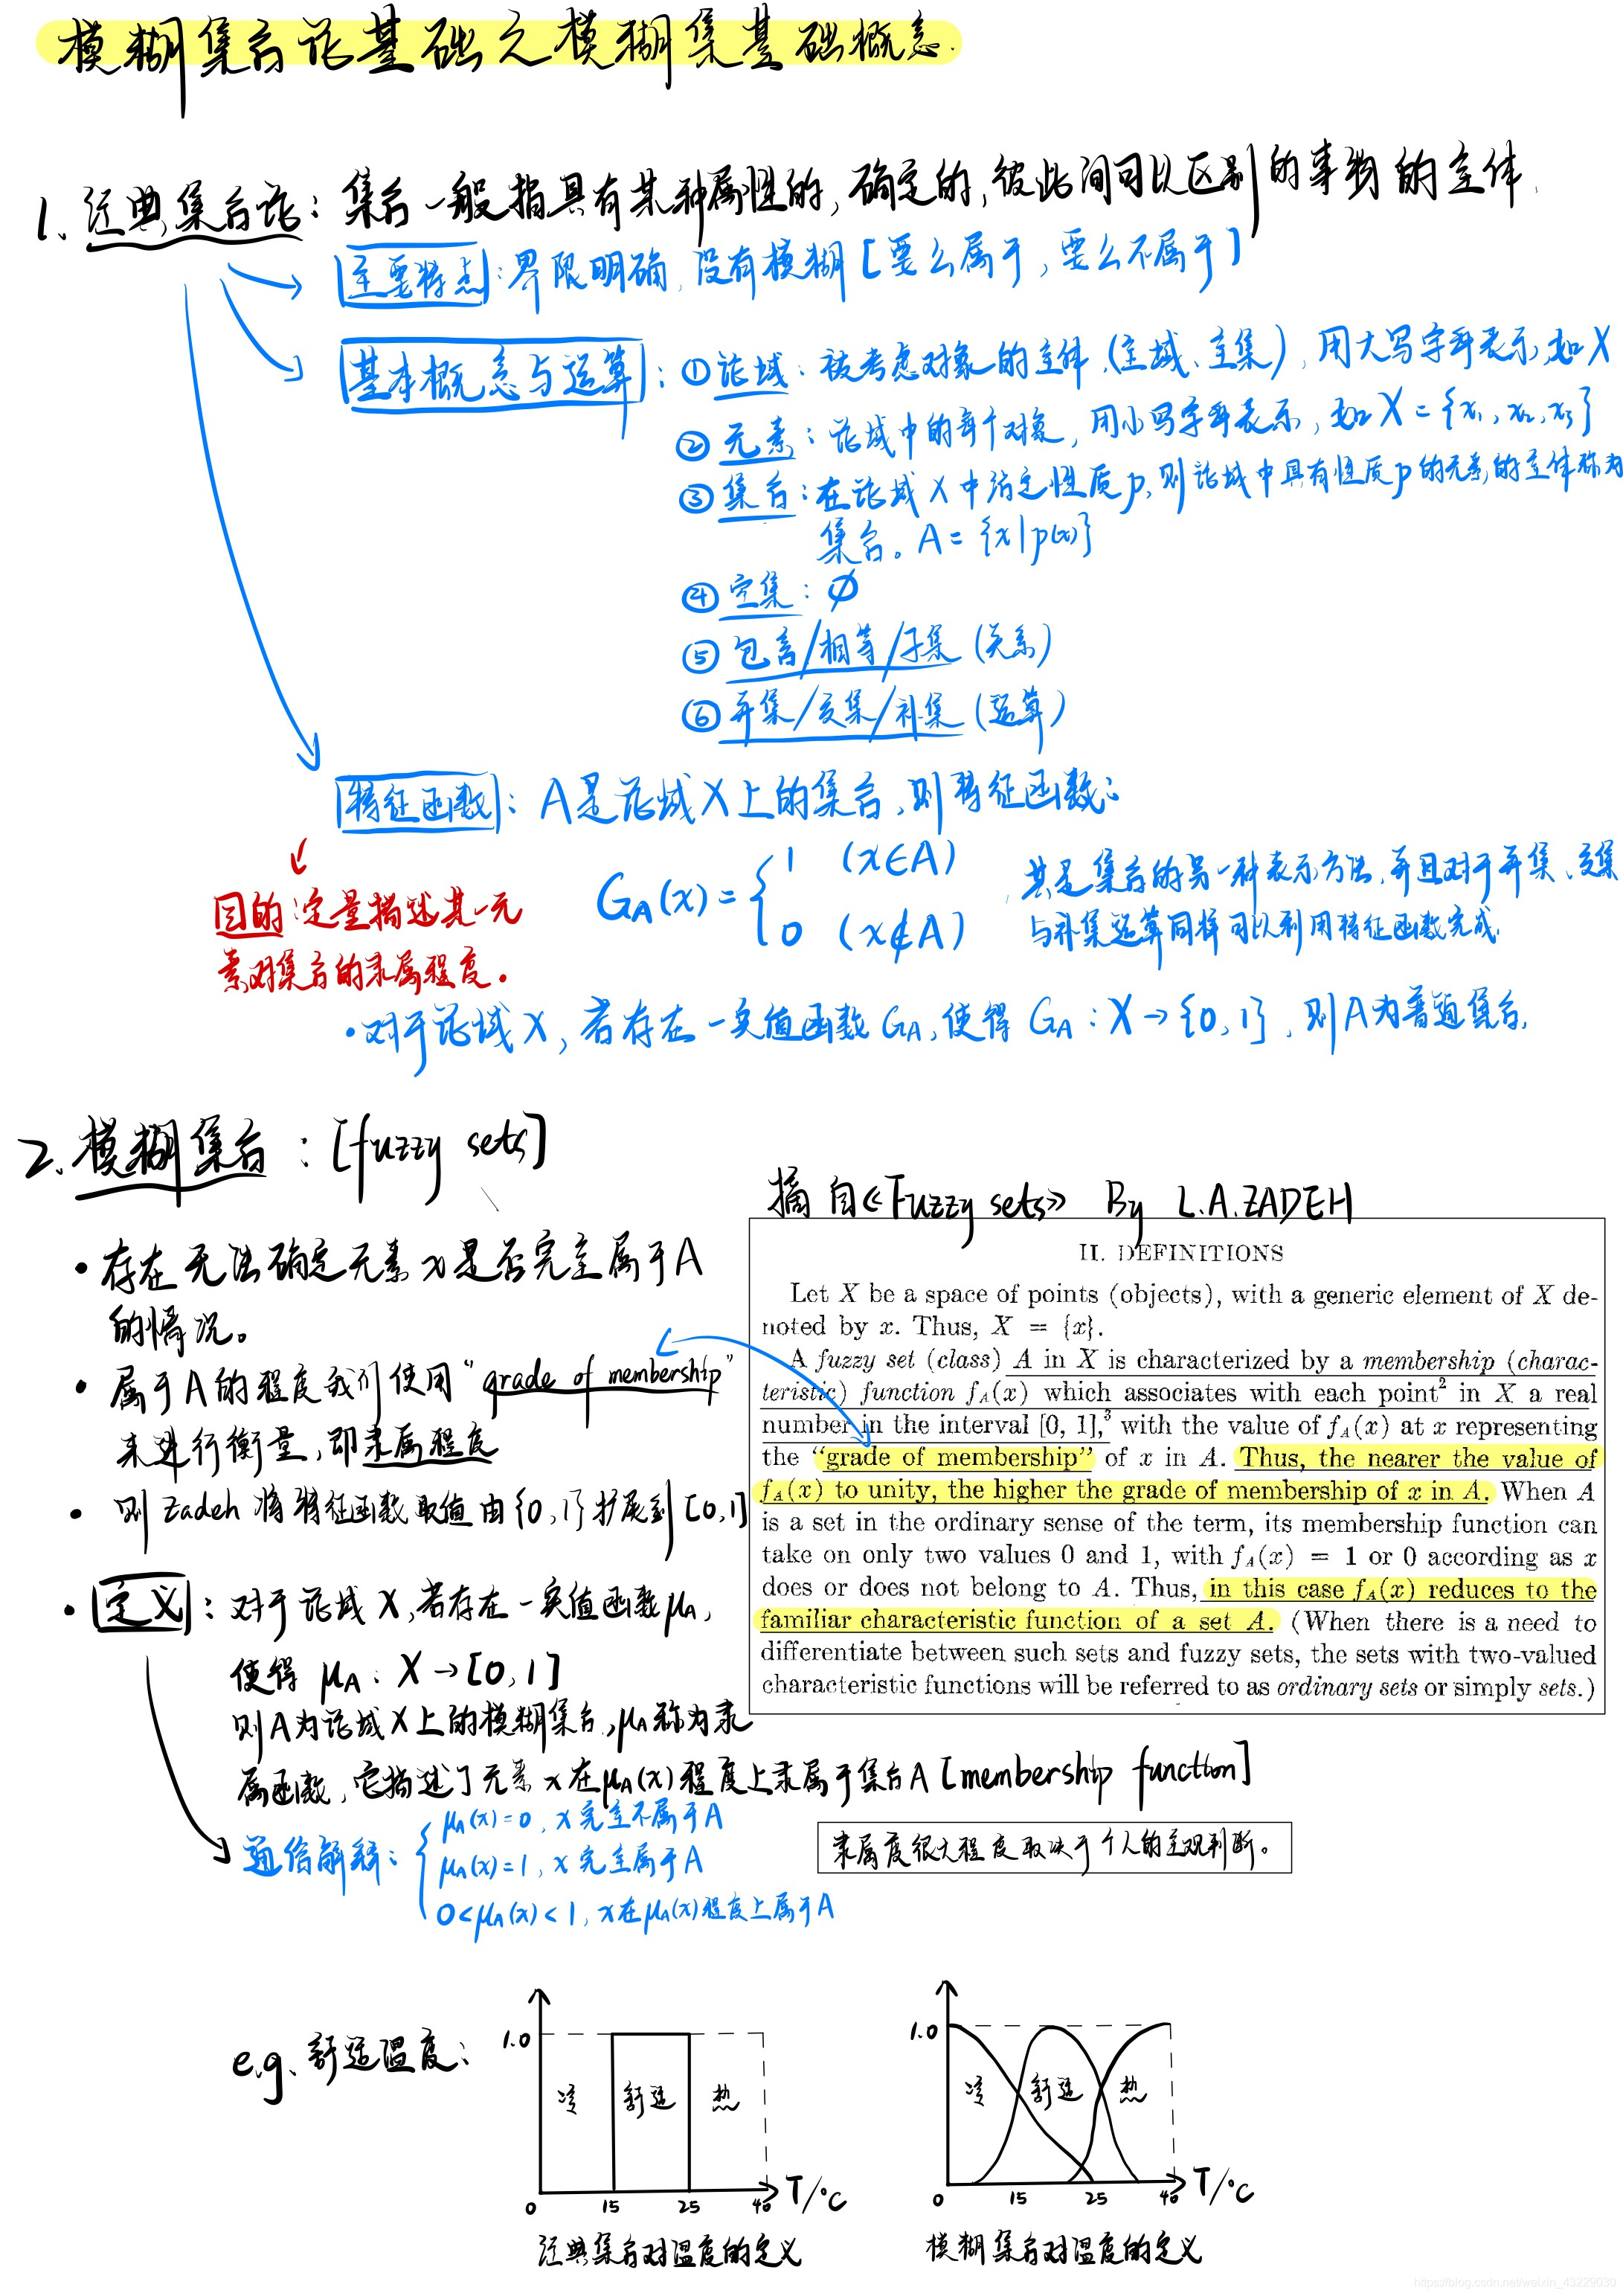 模糊集合论基础之模糊集基础概念.
1、经典集合论：集合一般指具有某种属性的,确定的,彼此间可以区别的事物的全体.
主要特点：界限明确,没有模糊[要么属于,要么不属于]
基本概念与运算：①论域：被考虑对象的全体(全域、全集),用大写字母表示,如X
②元素：论域中的每个对象,用小写字母表示,如X={x₁,x₂,x₃}
③集合：在论域X中给定性质p,则论域中具有性质p的元素的全体称为
集合。A={x|p(x)}
④空集：∅
⑤包含/相等/子集(关系)
⑥并集/交集/补集(运算)
特征函数：A是论域X上的集合,则特征函数：
目的：定量描述某一元
素对集合的隶属程度。
G_A(x)={1 (x∈A)
0 (x∉A)
,其是集合的另一种表示方法,并且对于并集、交集
与补集运算同样可以利用特征函数完成.
·对于论域X,若存在一实值函数G_A,使得 G_A：X→{0,1},则A为普通集合.
2、模糊集合：[fuzzy sets]
·存在无法确定元素x是否完全属于A
的情况。
·属于A的程度我们使用“grade of membership”
来进行衡量,即隶属程度
·则Zadeh将特征函数取值由{0,1}扩展到[0,1]
·定义：对于论域X,若存在一实值函数μ_A,
使得 μ_A：X→[0,1]
则A为论域X上的模糊集合,μ_A称为隶
属函数,它描述了元素x在μ_A(x)程度上隶属于集合A[membership function]
摘自《Fuzzy sets》 By L.A.ZADEH
II. DEFINITIONS
Let X be a space of points (objects), with a generic element of X de-
noted by x. Thus, X = {x}.
A fuzzy set (class) A in X is characterized by a membership (charac-
teristic) function f_A(x) which associates with each point² in X a real
number in the interval [0, 1],³ with the value of f_A(x) at x representing
the “grade of membership” of x in A. Thus, the nearer the value of
f_A(x) to unity, the higher the grade of membership of x in A. When A
is a set in the ordinary sense of the term, its membership function can
take on only two values 0 and 1, with f_A(x) = 1 or 0 according as x
does or does not belong to A. Thus, in this case f_A(x) reduces to the
familiar characteristic function of a set A. (When there is a need to
differentiate between such sets and fuzzy sets, the sets with two-valued
characteristic functions will be referred to as ordinary sets or simply sets.)
通俗解释：{μ_A(x)=0,x完全不属于A
μ_A(x)=1,x完全属于A
0<μ_A(x)<1,x在μ_A(x)程度上属于A
隶属度很大程度取决于个人的主观判断。
e.g、舒适温度：
1.0
冷 舒适 热
0 15 25 40 T/°C
经典集合对温度的定义
1.0
冷 舒适 热
0 15 25 40 T/°C
模糊集合对温度的定义
https://blog.csdn.net/weixin_43229030